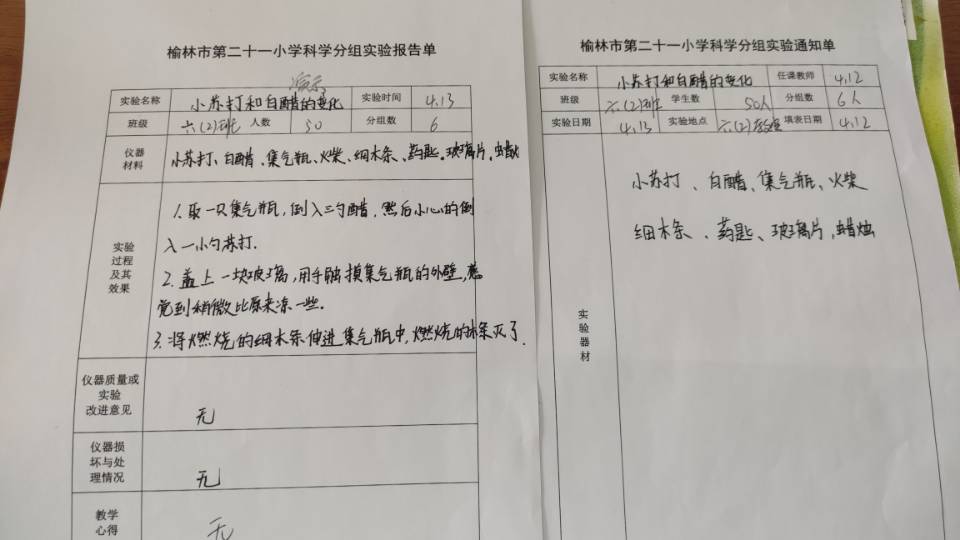 榆林市第二十一小学科学分组实验报告单
演示
实验名称 小苏打和白醋的变化 实验时间 4.13
班级 六(2)班 人数 50 分组数 6
仪器
材料
小苏打、白醋、集气瓶、火柴、细木条、药匙。玻璃片。蜡烛
实验
过程
及其
效果
1.取一只集气瓶,倒入三勺醋,然后小心的倒
入一小勺苏打.
2.盖上一块玻璃,用手触摸集气瓶的外壁,感
觉到稍微比原来凉一些.
3.将燃烧的细木条伸进集气瓶中,燃烧的木条灭了.
仪器质量或
实验
改进意见
无
仪器损
坏与处
理情况
无
教学
心得
无
榆林市第二十一小学科学分组实验通知单
实验名称 小苏打和白醋的变化 任课教师 4.12
班级 六(2)班 学生数 50人 分组数 6人
实验日期 4.13 实验地点 六(2)教室 填表日期 4.12
实验器材
小苏打、白醋、集气瓶、火柴
细木条、药匙、玻璃片,蜡烛